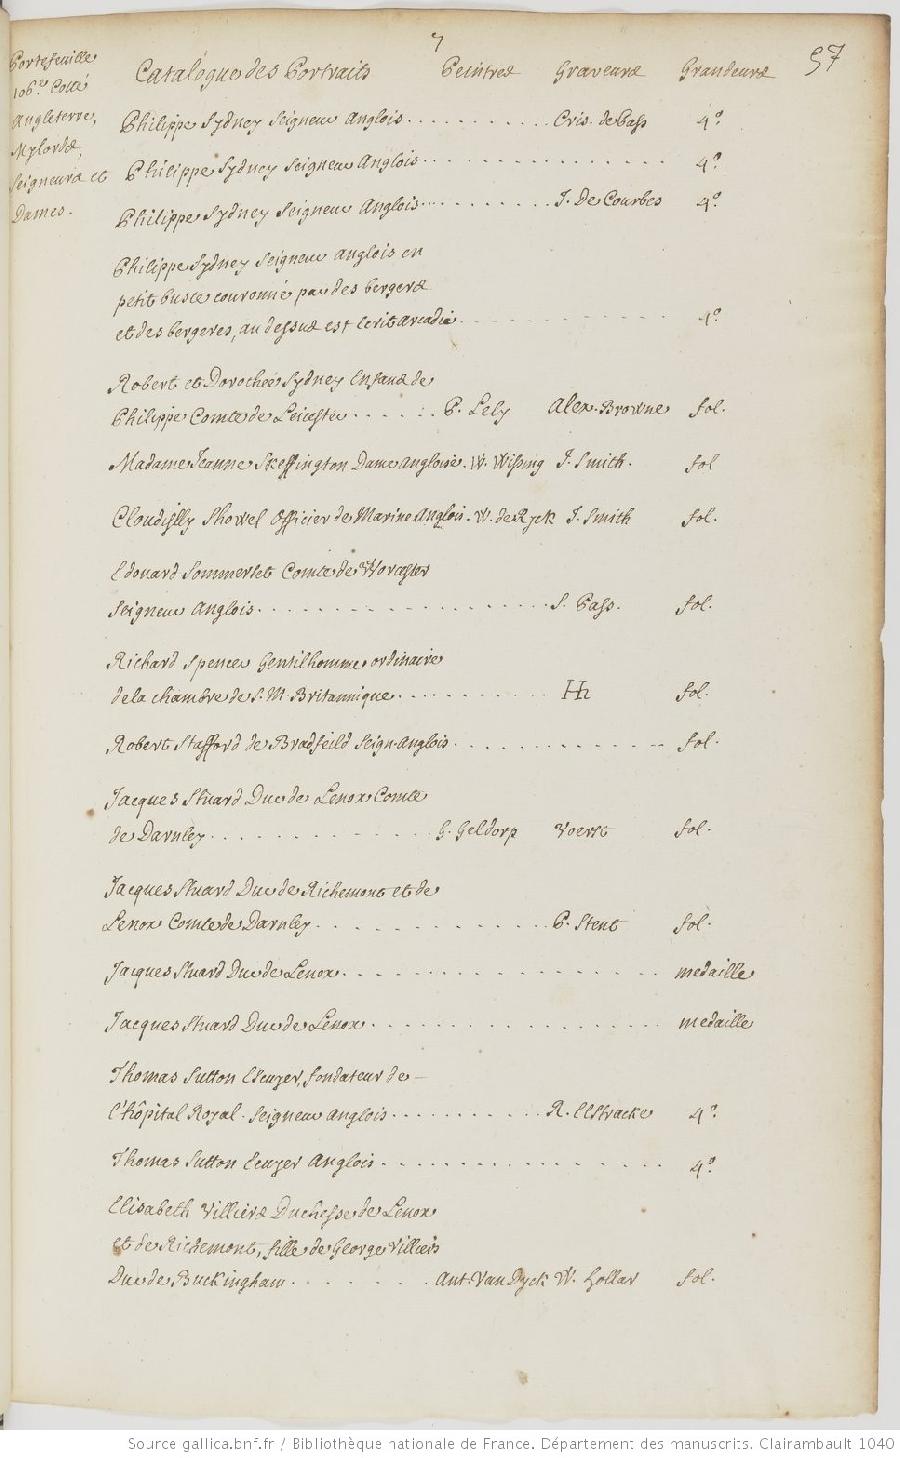 7
57
Portefeuille
106.e Cotté
Angleterre,
Mylords,
Seigneurs et
Dames.
Catalogue des Portraits Peintres Graveurs Grandeurs
Philippe Sydney Seigneur Anglois. . . . . . . . . . Cris. de Pass 4.º
Philippe Sydney Seigneur Anglois. . . . . . . . . . 4.º
Philippe Sydney Seigneur Anglois. . . . . . . . . . J. De Courbes 4.º
Philippe Sydney Seigneur Anglois en
petit buste couronné par des bergers
et des bergeres, au dessus est écrit arcadie. . . . . . . . . . 4.º
Robert et Dorothée Sydney Enfans de
Philippe Comte de Leicester. . . . . . P. Lely Alex. Browne fol.
Madame Jeanne Skeffington Dame angloise. W. Wissing J. Smith. fol
Cloudislly Showel Officier de Marine Anglois. W. de Ryck J. Smith fol.
Edouard Sommerset Comte de Worcester
Seigneur Anglois. . . . . . . . . . S. Pass. fol.
Richard Spence Gentilhomme ordinaire
de la chambre de S. M. Britannique. . . . . . . . . . Hh fol.
Robert Stafford de Bradfeild Seign. Anglois. . . . . . . . . . fol.
Jacques Stuard Duc de Lenox Comte
de Darnley. . . . . . . . . . G. Geldorp Voerst fol.
Jacques Stuard Duc de Richemont et de
Lenox Comte de Darnley. . . . . . . . . . P. Stent fol.
Jacques Stuard Duc de Lenox. . . . . . . . . . medaille
Jacques Stuard Duc de Lenox. . . . . . . . . . medaille
Thomas Sutton Ecuyer, fondateur de –
l'hôpital Royal. Seigneur anglois. . . . . . . . . . R. Elstracke 4.º
Thomas Sutton Ecuyer Anglois. . . . . . . . . . 4.º
Elisabeth Villiers Duchesse de Lenox
et de Richemont, fille de George Villiers
Duc de Buckingham. . . . . . . Ant. Van Dyck W. Hollar fol.
Source gallica.bnf.fr / Bibliothèque nationale de France. Département des manuscrits. Clairambault 1040